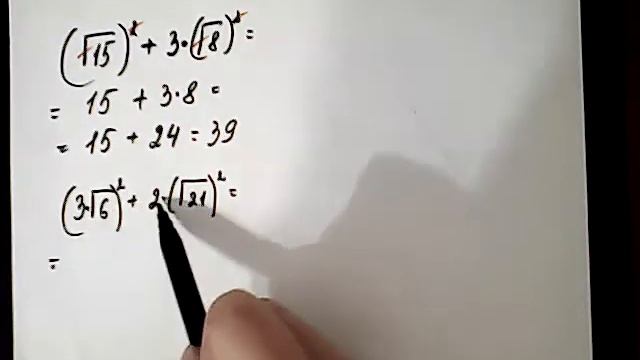 (√15)² + 3·(√8)² =
= 15 + 3·8 =
= 15 + 24 = 39
(3·√6)² + 2·(√21)² =
=